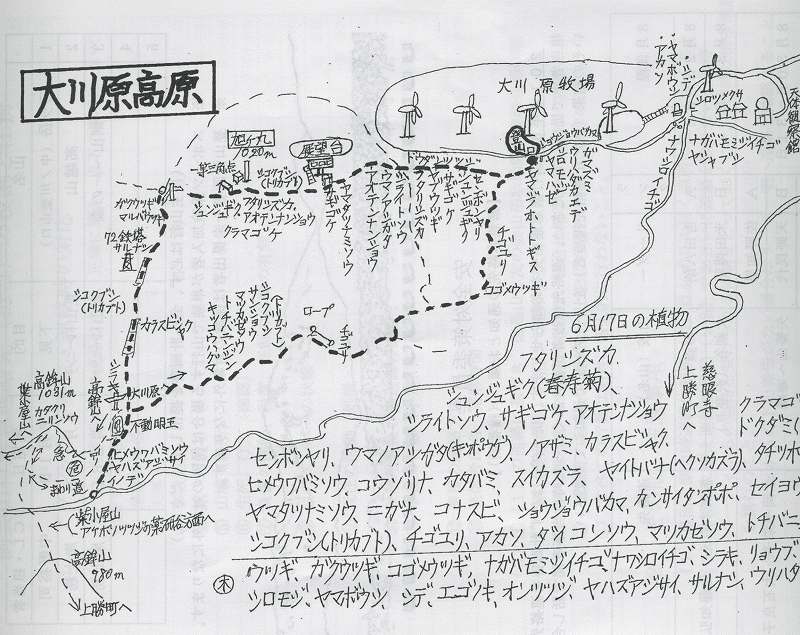 大川原高原
旭ヶ丸
1020m
三角点
展望台
大川原牧場
シロツメクサ
天体観察館
ヤマボウシ
シデ
アカシ
ナワシロイチゴ
ナガバモミジイチゴ
ヤシャブシ
ショウジョウバカマ
ガマズミ
ウリハダカエデ
ヤマジノホトトギス
シコクブシ
(トリカブト)
シュンジュギク
フタリシズカ
アオテンナンショウ
クラマゴケ
サギゴケ
ヤマタツナミソウ
アオテンナンショウ
ウマノアシガタ
シライトソウ
フタリシズカ
サギゴケ
シュンジュギク
センボンヤリ
チゴユリ
コゴメウツギ
ガクウツギ
マルバウツギ
72鉄塔
サルナシ
シコクブシ
(トリカブト)
カラスビシャク
(トリカブト)
シコクブシ
サンショウ
マツカゼソウ
トチバニンジン
キッコウハグマ
ロープ
チゴユリ
シラキ
大川原へ
高鉾山へ
不動明王
高鉾山
1031m
カタクリ
ニリンソウ
柴小屋山へ
急
まわり道
ヒメウワバミソウ
ヤハズアジサイ
イノデ
柴小屋山
高鉾山
980m
上勝町へ
慈眼寺
上勝町へ
6月17日の植物
フタリシズカ
シュンジュギク(春寿菊)、
シライトソウ、サギゴケ、アオテンナンショウ クラマゴ
センボンヤリ、ウマノアシガタ(キンポウゲ)、ノアザミ、カラスビシャク、 ドクダミ(
ヒメウワバミソウ、コウゾリナ、カタバミ、スイカズラ、ヤイトバナ(ヘクソカズラ)、タチツボ
ヤマタツナミソウ、ニガナ、コナスビ、ショウジョウバカマ、カンサイタンポポ、セイヨウ
シコクブシ(トリカブト)、チゴユリ、アカソ、ダイコンソウ、マツカゼソウ、トチバニ
木 ウツギ、ガクウツギ、コゴメウツギ、ナガバモミジイチゴ、ナワシロイチゴ、シラキ、リョウブ、
シロモジ、ヤマボウシ、シデ、エゴノキ、オンツツジ、ヤハズアジサイ、サルナシ、ウリハダ